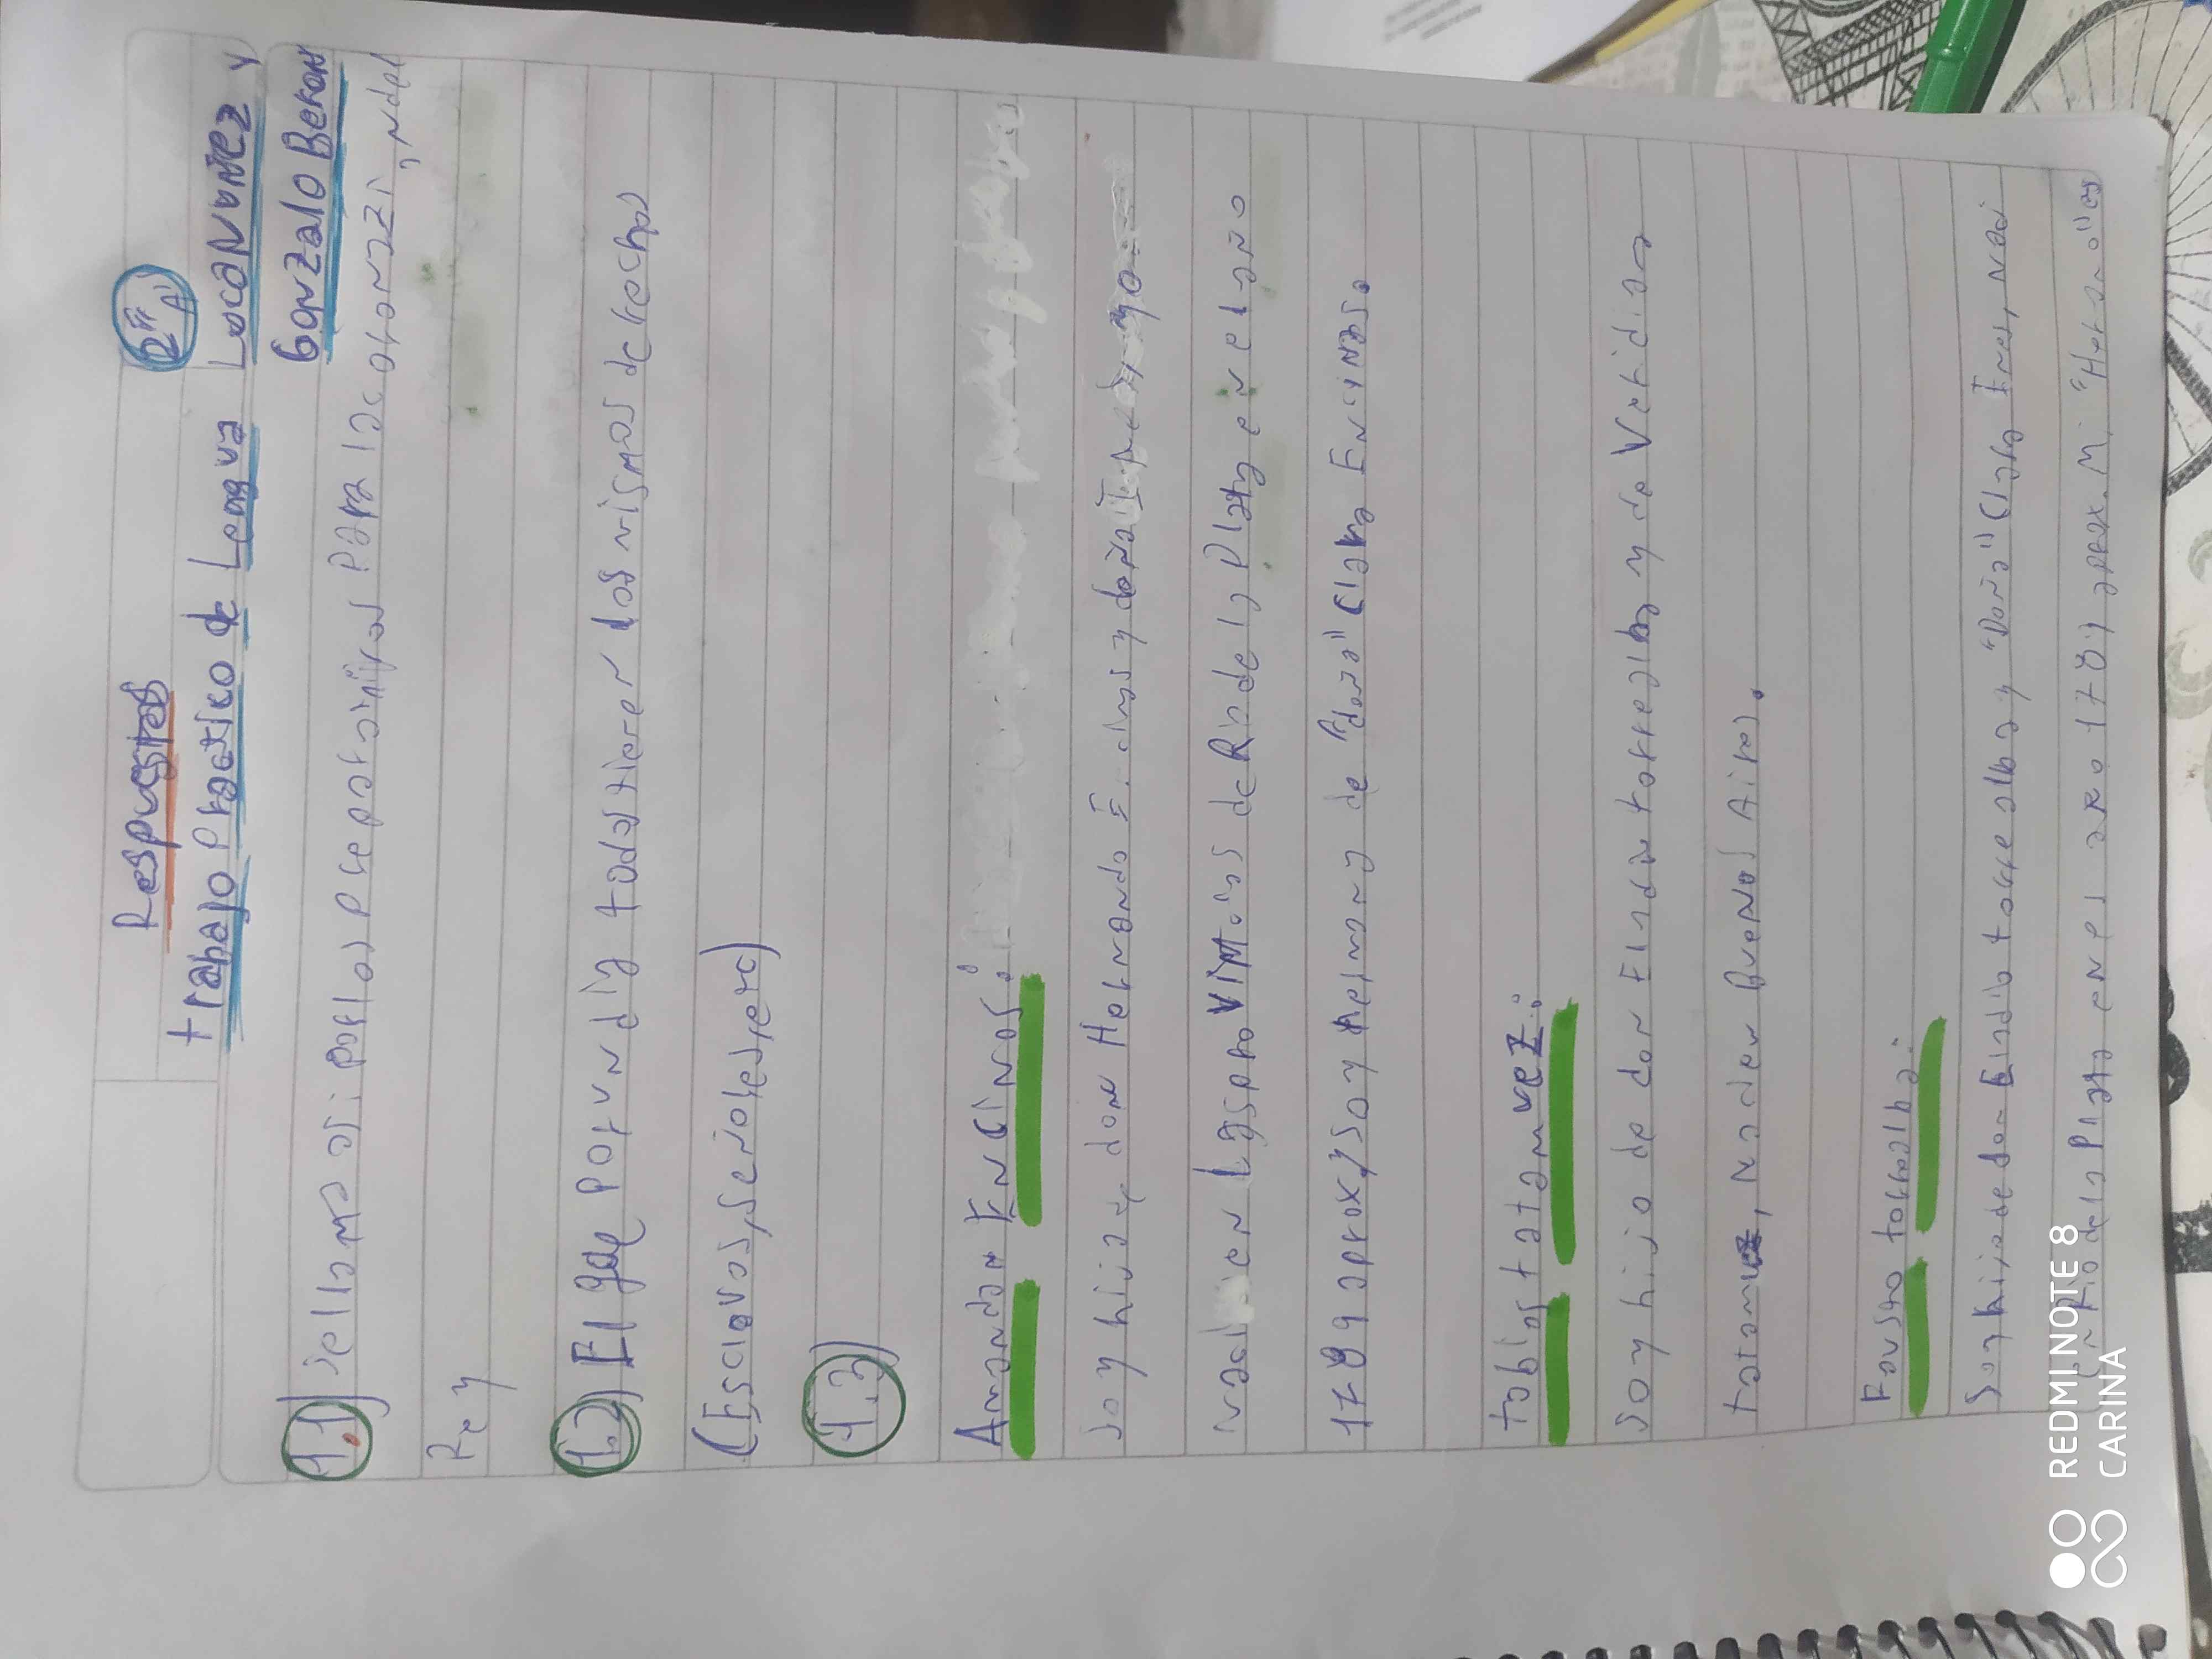 Respuestas
2"A"
trabajo Practico de Lengua Loca Nuñez y
Gonzalo Beron
1.1) Se llama asi por los preparamivos para la coronazi,ndel
Rey
1.2) El que Porundia todos tienen los mismos derechos
(Esclavos, Señores, etc)
1.3)
Amandan Encinos:
Soy hijo de don Hernando E. dins y doña
Naci en Virreino de Rio de la Plata en el año
1789 aprox, soy hermano de "doña" Clara Encinas.
tobias tatamuez:
Soy hijo de don Eladio torrealba y de Veridiana
tatamuez, Naci en Buenos Aires.
Fausto torrealba:
Soy hijo de don Eladio torrealba y "Doña" Clara Ines, Naci
en Rio de la Plata en el año 1781 aprox. Mi "Hermano" es
REDMI NOTE 8
CARINA